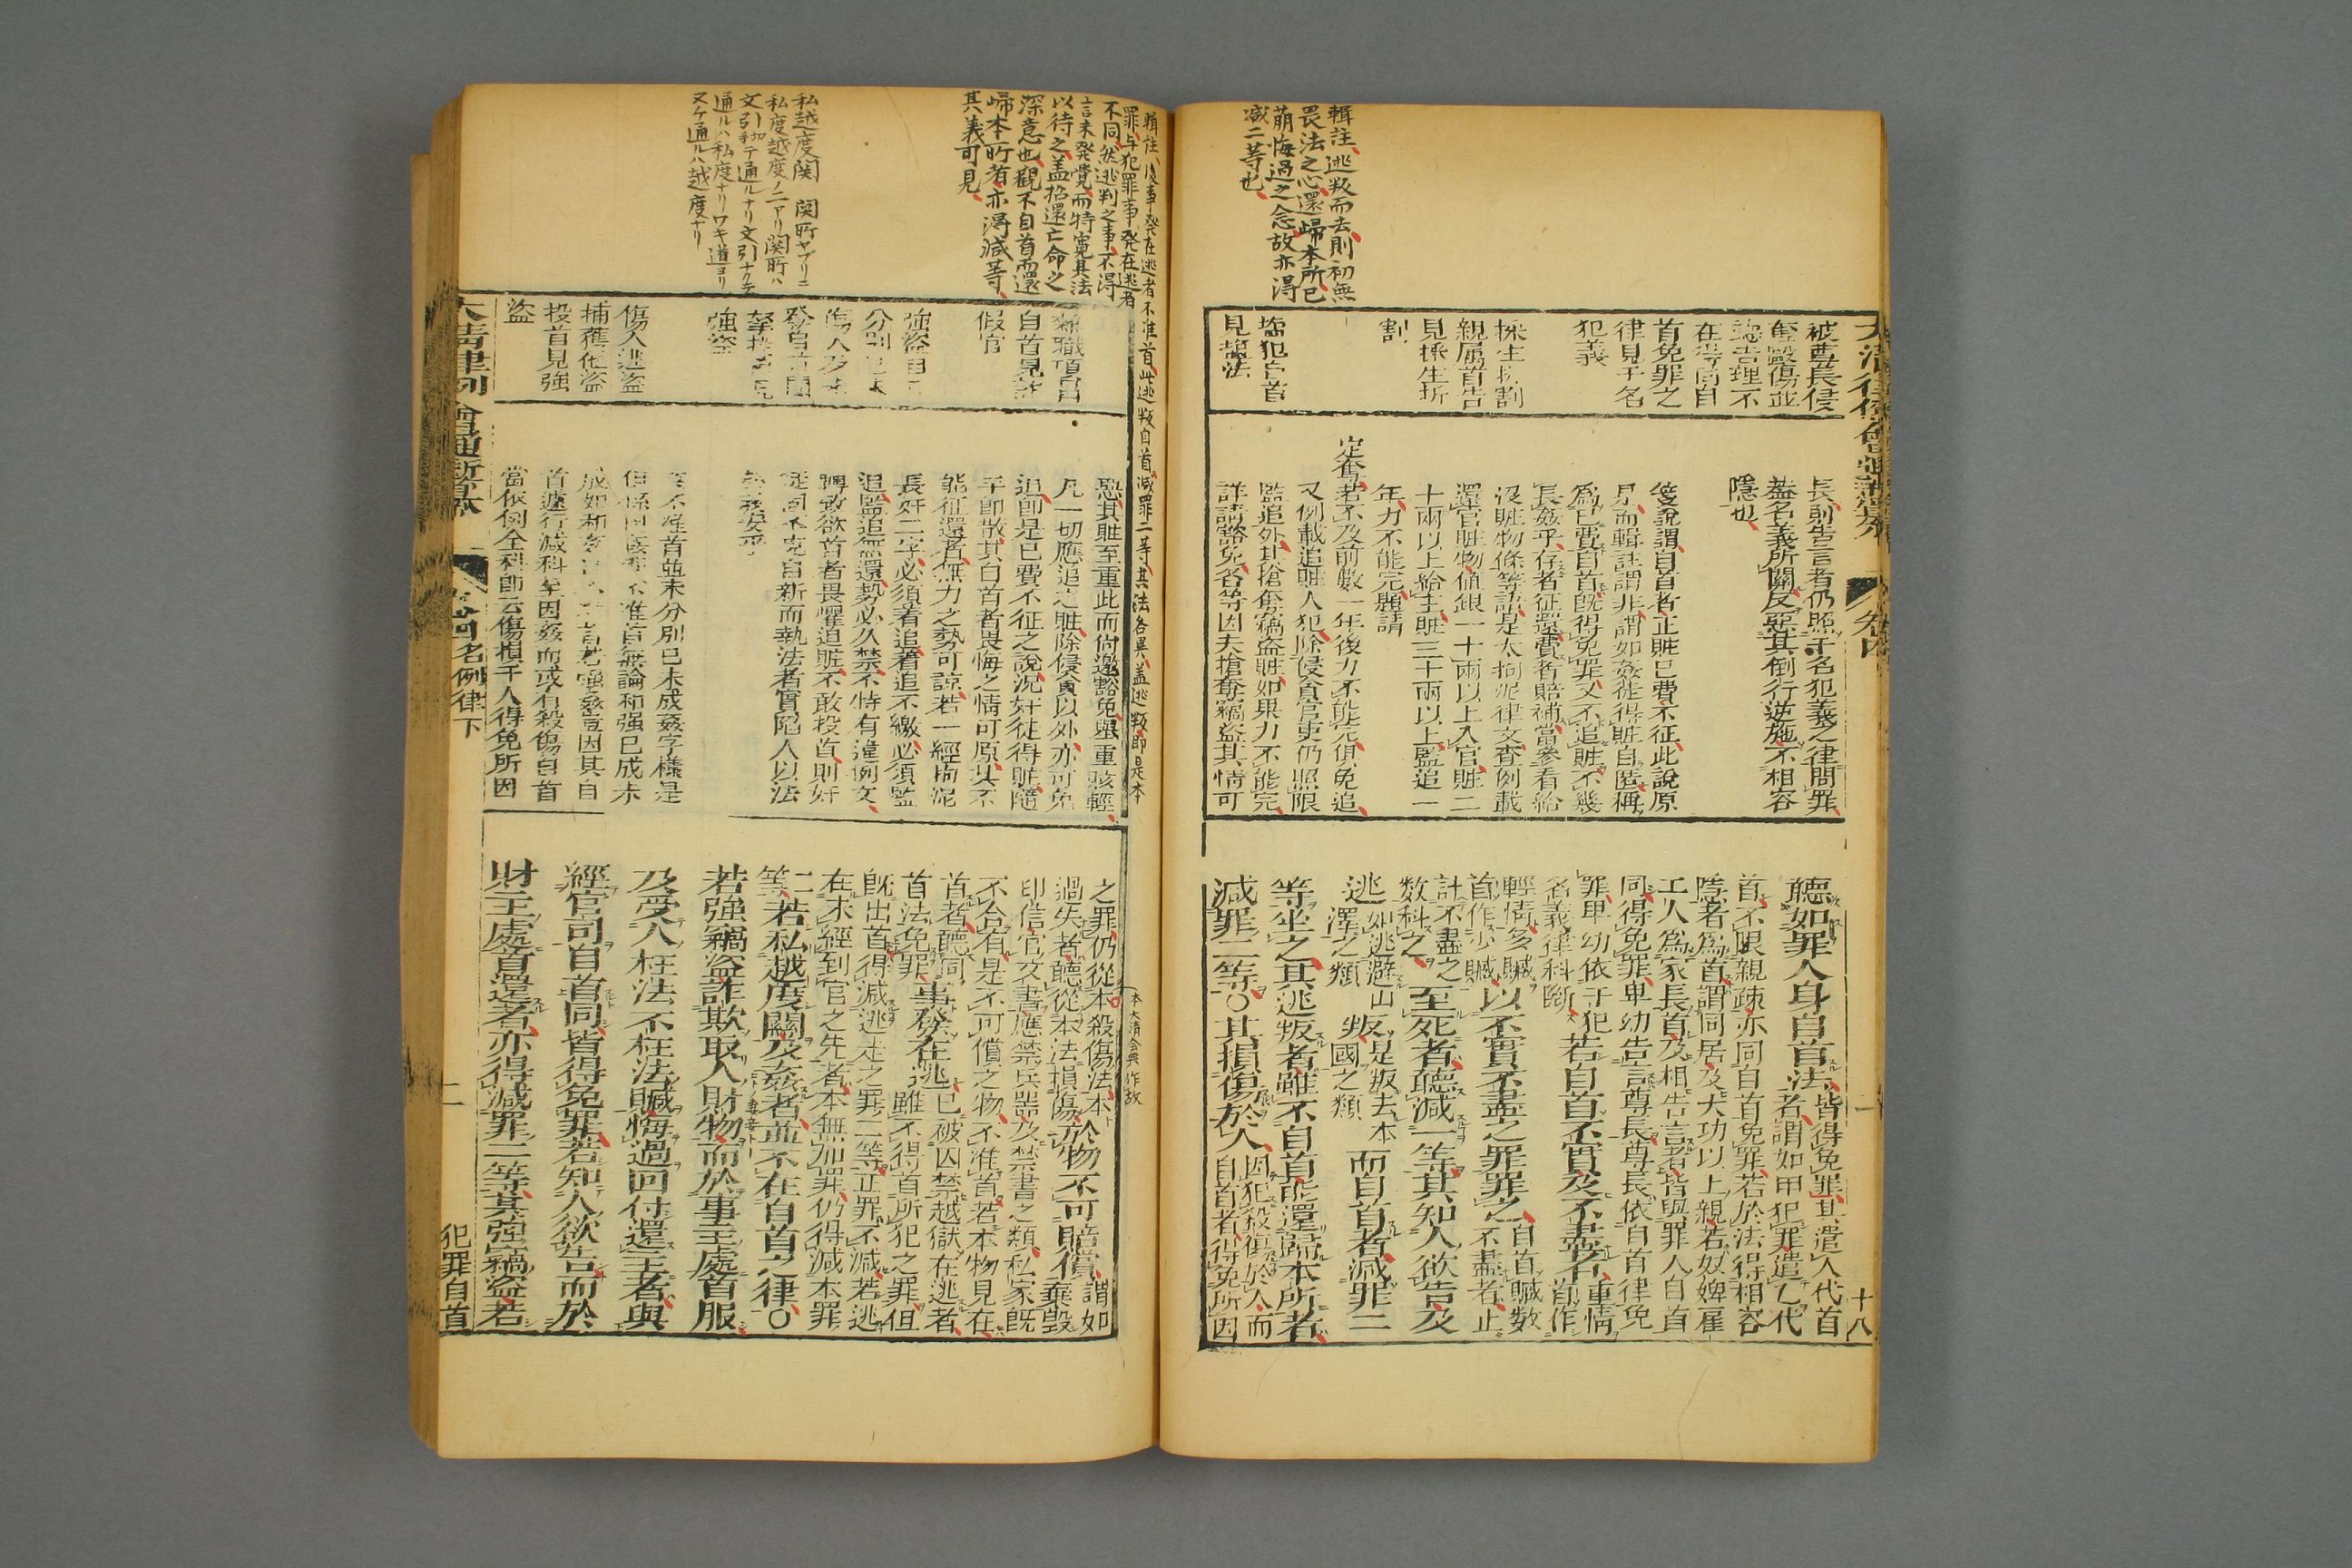 輯註、逃叛而去、則初無
畏法之心、還歸本所、已
萌悔過之念、故亦得
減二等也、
被尊長侵
奪毆傷並
聽告理不
在得同自
首免罪之
律見干名
犯義
採生折割
親屬首告
見採生折
割
塩犯自首
見塩法
長則告言者仍照干名犯義之律問罪
蓋名義所關反惡其倒行逆施不相容
隱也
箋說謂自首者正賍已費不征此說原
是而輯註謂非謂如姦徒得賍自匿稱
爲已費自首旣得免罪又不追賍不幾
長姦乎存者征還費者賠補當參看給
沒賍物條等語是太拘泥律文查例載
還官賍物値銀一十兩以上入官賍二
十兩以上給主賍三十兩以上監追一
年力不能完題請
定奪若不及前數一年後力不能完俱免追
又例載追賍人犯除侵貪官吏仍照限
監追外其搶奪竊盗賍如果力不能完
詳請豁免各等因夫搶奪竊盗其情可
聽如罪人身自首法皆得免罪其遣人代首
者謂如甲犯罪遣乙代
首不限親疎亦同自首免罪若於法得相容
隱者爲首謂同居及大功以上親若奴婢雇
工人爲家長首及相告言者皆與罪人自首
同得免罪卑幼告言尊長尊長依自首律免
罪卑幼依干犯
名義律科斷若自首不實及不盡者重情首作
輕情多贓
首作少贓以不實不盡之罪罪之自首贓數
不盡者止
計不盡之
數科之至死者聽減一等其知人欲告及
逃如逃避山
澤之類叛是叛去本
國之類而自首者減罪二
等坐之其逃叛者雖不自首能還歸本所者
減罪二等○其損傷於人因犯殺傷於人而
自首者得免所因
大清律例會通新纂
卷四
十八
輯註、後事發在逃者不准首、此逃叛自首、減罪二等、其法各異、蓋逃叛即是本
罪、与犯罪事發在逃者
不同、然逃判之事、不得
言未発覺、而特寛其法
以待之、蓋招還亡命之
深意也、觀不自首而還
歸本所者、亦得減等、
其義可見、
私越度関　関所ヤブリニ
私度越度ノ二アリ関所ハ
文引切手テ通ルナリ文引ナクテ
通ルハ私度ナリワキ道ヨリ
ヌケ通ルハ越度ナリ
自首見詐
假官
強盗自
分別已未
傷人及
強盗
傷人逃盗
捕獲他盗
投首見強
盗
恐其賍至重此而倘邀豁免與重賅輕
凡一切應追之賍除侵貪以外亦可免
追卽是已費不征之說況奸徒得賍隨
手卽散其自首者畏悔之情可原其不
能征還者無力之勢可諒若一經拘泥
長奸二字必須着追着追不繳必須監
追監追無還勢必久禁不特有違例文
轉致欲首者畏懼追賍不敢投首則奸
徒固不克自新而執法者實陷人以法
不准首並未分別已未成姦字様是
但係因姦卽不准首無論和强已成未
首遽行減科至因姦而或有殺傷自首
當依例全科卽云傷損于人得免所因
之罪仍從本殺傷法本
過失者聽從本法損傷於物不可賠償謂如
棄毀
印信官文書應禁兵器及禁書之類私家旣
不合有是不可償之物不准首若本物見在
首者聽同
首法免罪事發在逃已被囚禁越獄在逃者
雖不得首所犯之罪但
旣出首得減逃走之罪二等正罪不減若逃
在未經到官之先者本無加罪仍得減本罪
二等若私越度關及姦者並不在自首之律○
若強竊盗詐欺取人財物而於事主處首服
及受人枉法不枉法贓悔過回付還主者與
經官司自首同皆得免罪若知人欲告而於
財主處首還者亦得減罪二等其強竊盗若
本大清会典作故
大清律例會通新纂
名例律下
二
犯罪自首